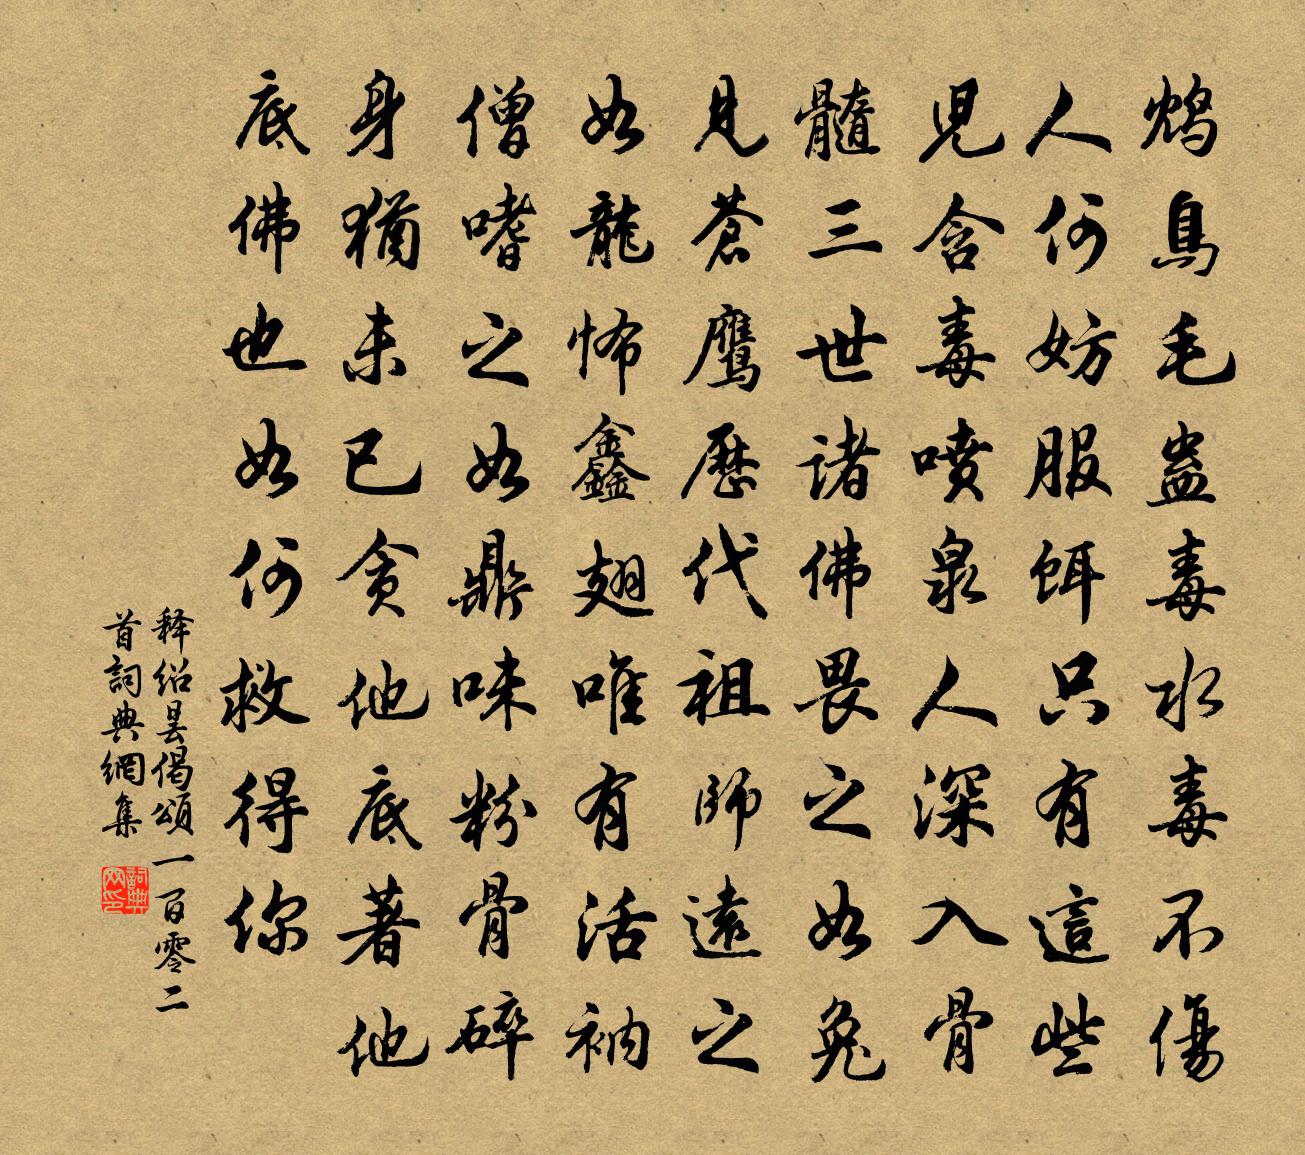 鴆鳥毛蠱毒水毒不傷
人何妨服餌只有這些
兒含毒噴泉人深入骨
髓三世諸佛畏之如兔
見蒼鷹歷代祖師遠之
如龍怖鑫翅唯有活衲
僧嗜之如鼎味粉骨碎
身猶未已貪他底著他
底佛也如何救得你
释紹曇偈頌一百零二
首詞典網集
詞典网印